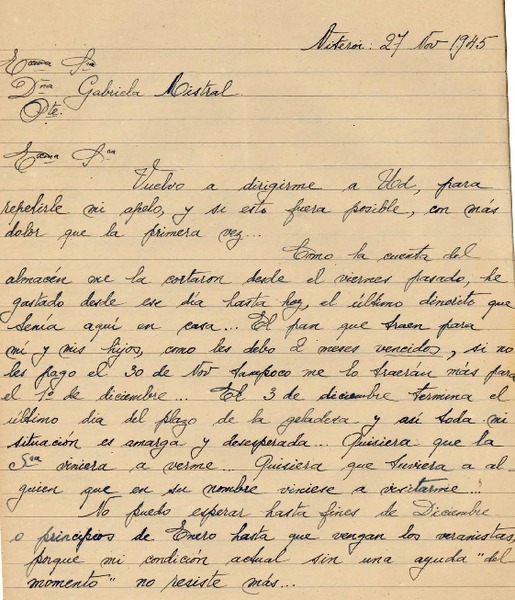 Niteroi: 27 Nov 1945
Exma Sra
Dña Gabriela Mistral.
Pte.
Exma Sra
Vuelvo a dirigirme a Ud, para
repetirle mi apelo, y si esto fuera posible, con más
dolor que la primera vez...
Como la cuenta del
almacén me la cortaron desde el viernes pasado, he
gastado desde ese día hasta hoy, el último dinerito que
tenía aquí en casa... El pan que traen para
mí y mis hijos, como les debo 2 meses vencidos, si no
les pago el 30 de Nov tampoco me lo traerán más para
el 1º de diciembre... El 3 de diciembre termina el
último dia del plazo de la geladera y así toda mi
situación es amarga y desesperada... Quisiera que la
Sra viniera a verme... Quisiera que tuviera a al-
guien que en su nombre viniese a visitarme...
No puedo esperar hasta fines de Diciembre
o principios de Enero hasta que vengan los veranistas,
porque mi condición actual sin una ayuda "del
momento" no resiste más...